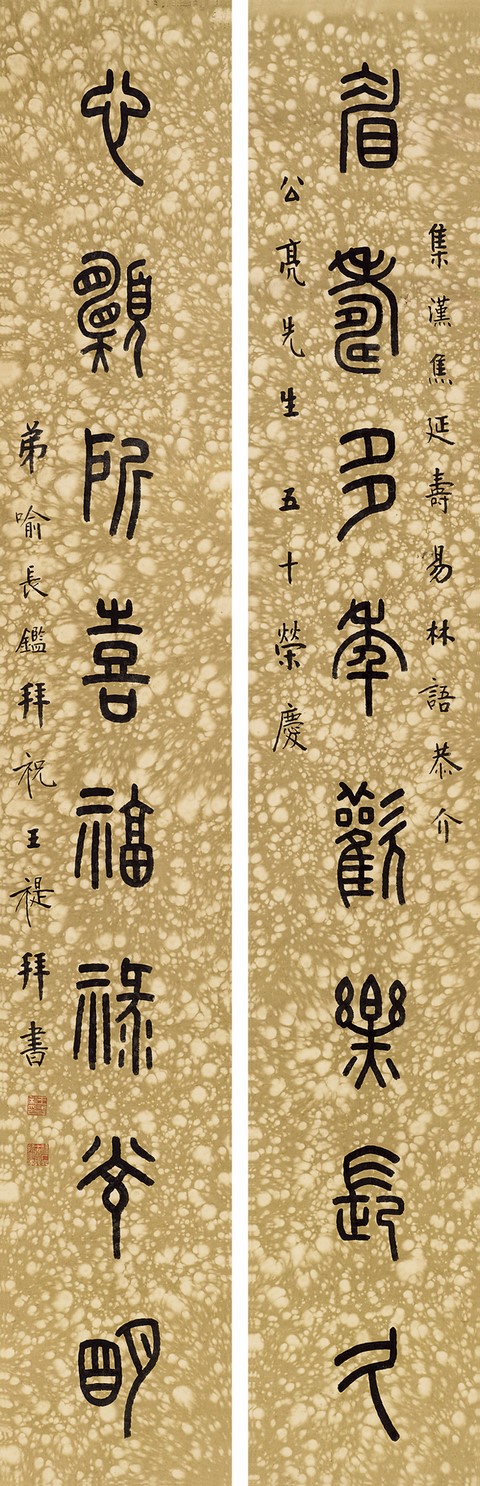 集漢焦延壽易林語恭介
眉壽多年歡樂長久
公亮先生五十榮慶
心願所喜福祿明
弟喻長鑑拜祝王禔拜書